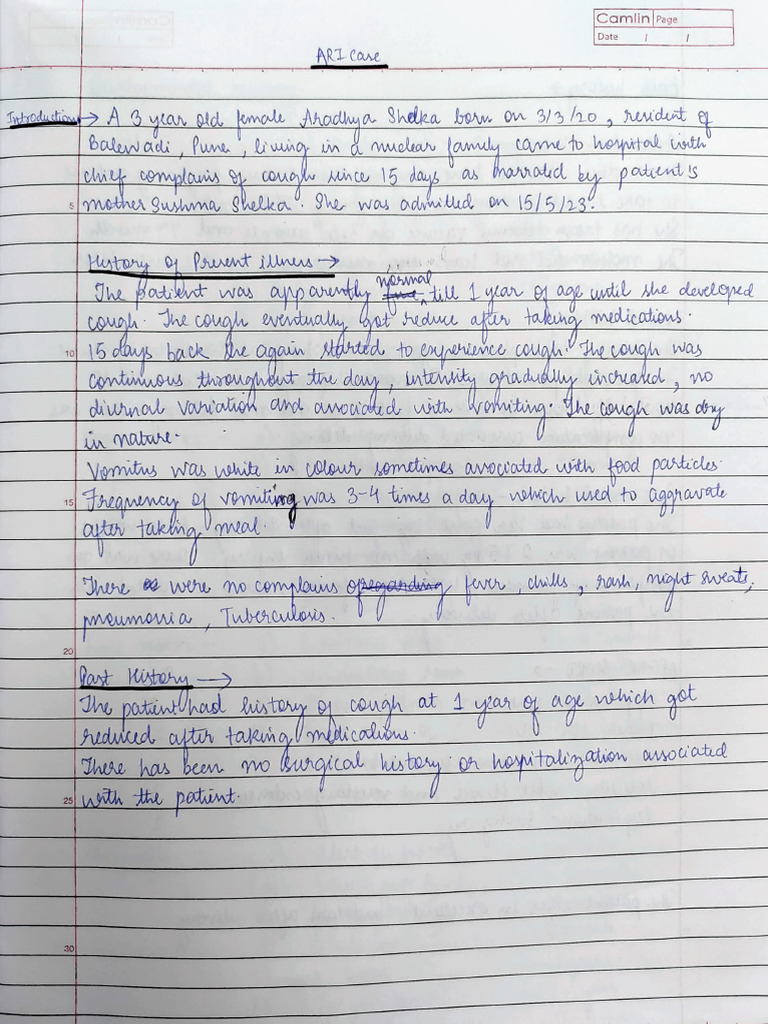 Camlin Page
Date / /
ARI Case
Introduction → A 3 year old female Aradhya Shelka born on 3/3/20, resident of
Balewadi, Pune, living in a nuclear family came to hospital with
chief complains of cough since 15 days as narrated by patient's
5 mother Sushma Shelka. She was admitted on 15/5/23.
History of Present illness →
The patient was apparently normal till 1 year of age until she developed
cough. The cough eventually got reduce after taking medications.
10 15 days back she again started to experience cough. The cough was
continuous throughout the day, intensity gradually increased, no
diurnal variation and associated with vomiting. The cough was dry
in nature.
Vomitus was white in colour sometimes associated with food particles.
15 Frequency of vomiting was 3-4 times a day which used to aggravate
after taking meal.
There were no complains of regarding fever, chills, rash, night sweats,
pneumonia, Tuberculosis.
20
Past History →
The patient had history of cough at 1 year of age which got
reduced after taking medications.
There has been no surgical history or hospitalization associated
25 with the patient.
30